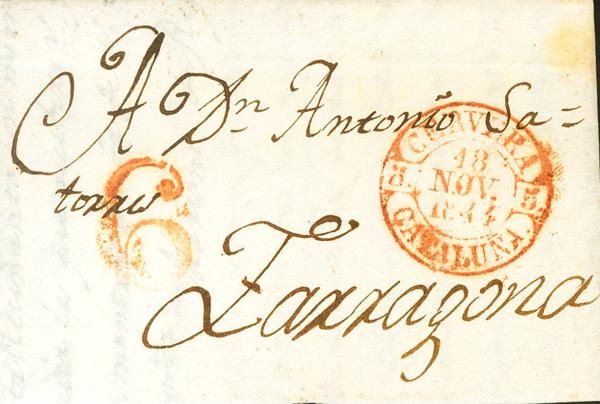 A Dn Antonio Sa=
torres
6
CERVERA
18
NOV.
1844
CATALUÑA
Tarragona